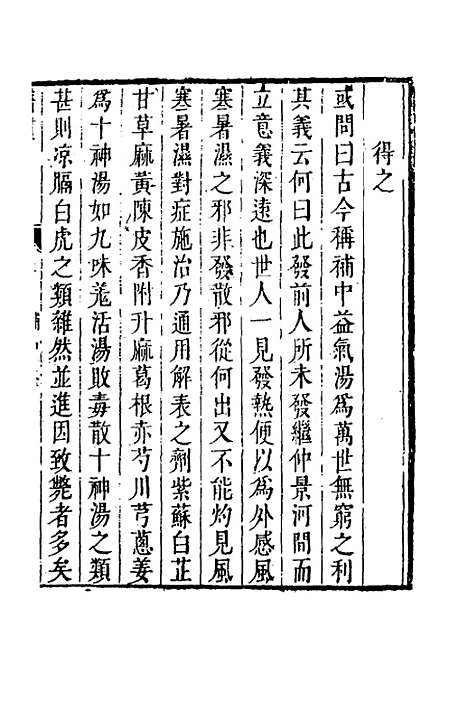 得之
或問曰古今稱補中益氣湯為萬世無窮之利
其義云何曰此發前人所未發繼仲景河間而
立意義深遠也世人一見發熱便以為外感風
寒暑濕之邪非發散邪從何出又不能灼見風
寒暑濕對症施治乃通用解表之劑紫蘇白芷
甘草麻黃陳皮香附升麻葛根赤芍川芎蔥姜
為十神湯如九味羗活湯敗毒散十神湯之類
甚則凉膈白虎之類雜然並進因致斃者多矣